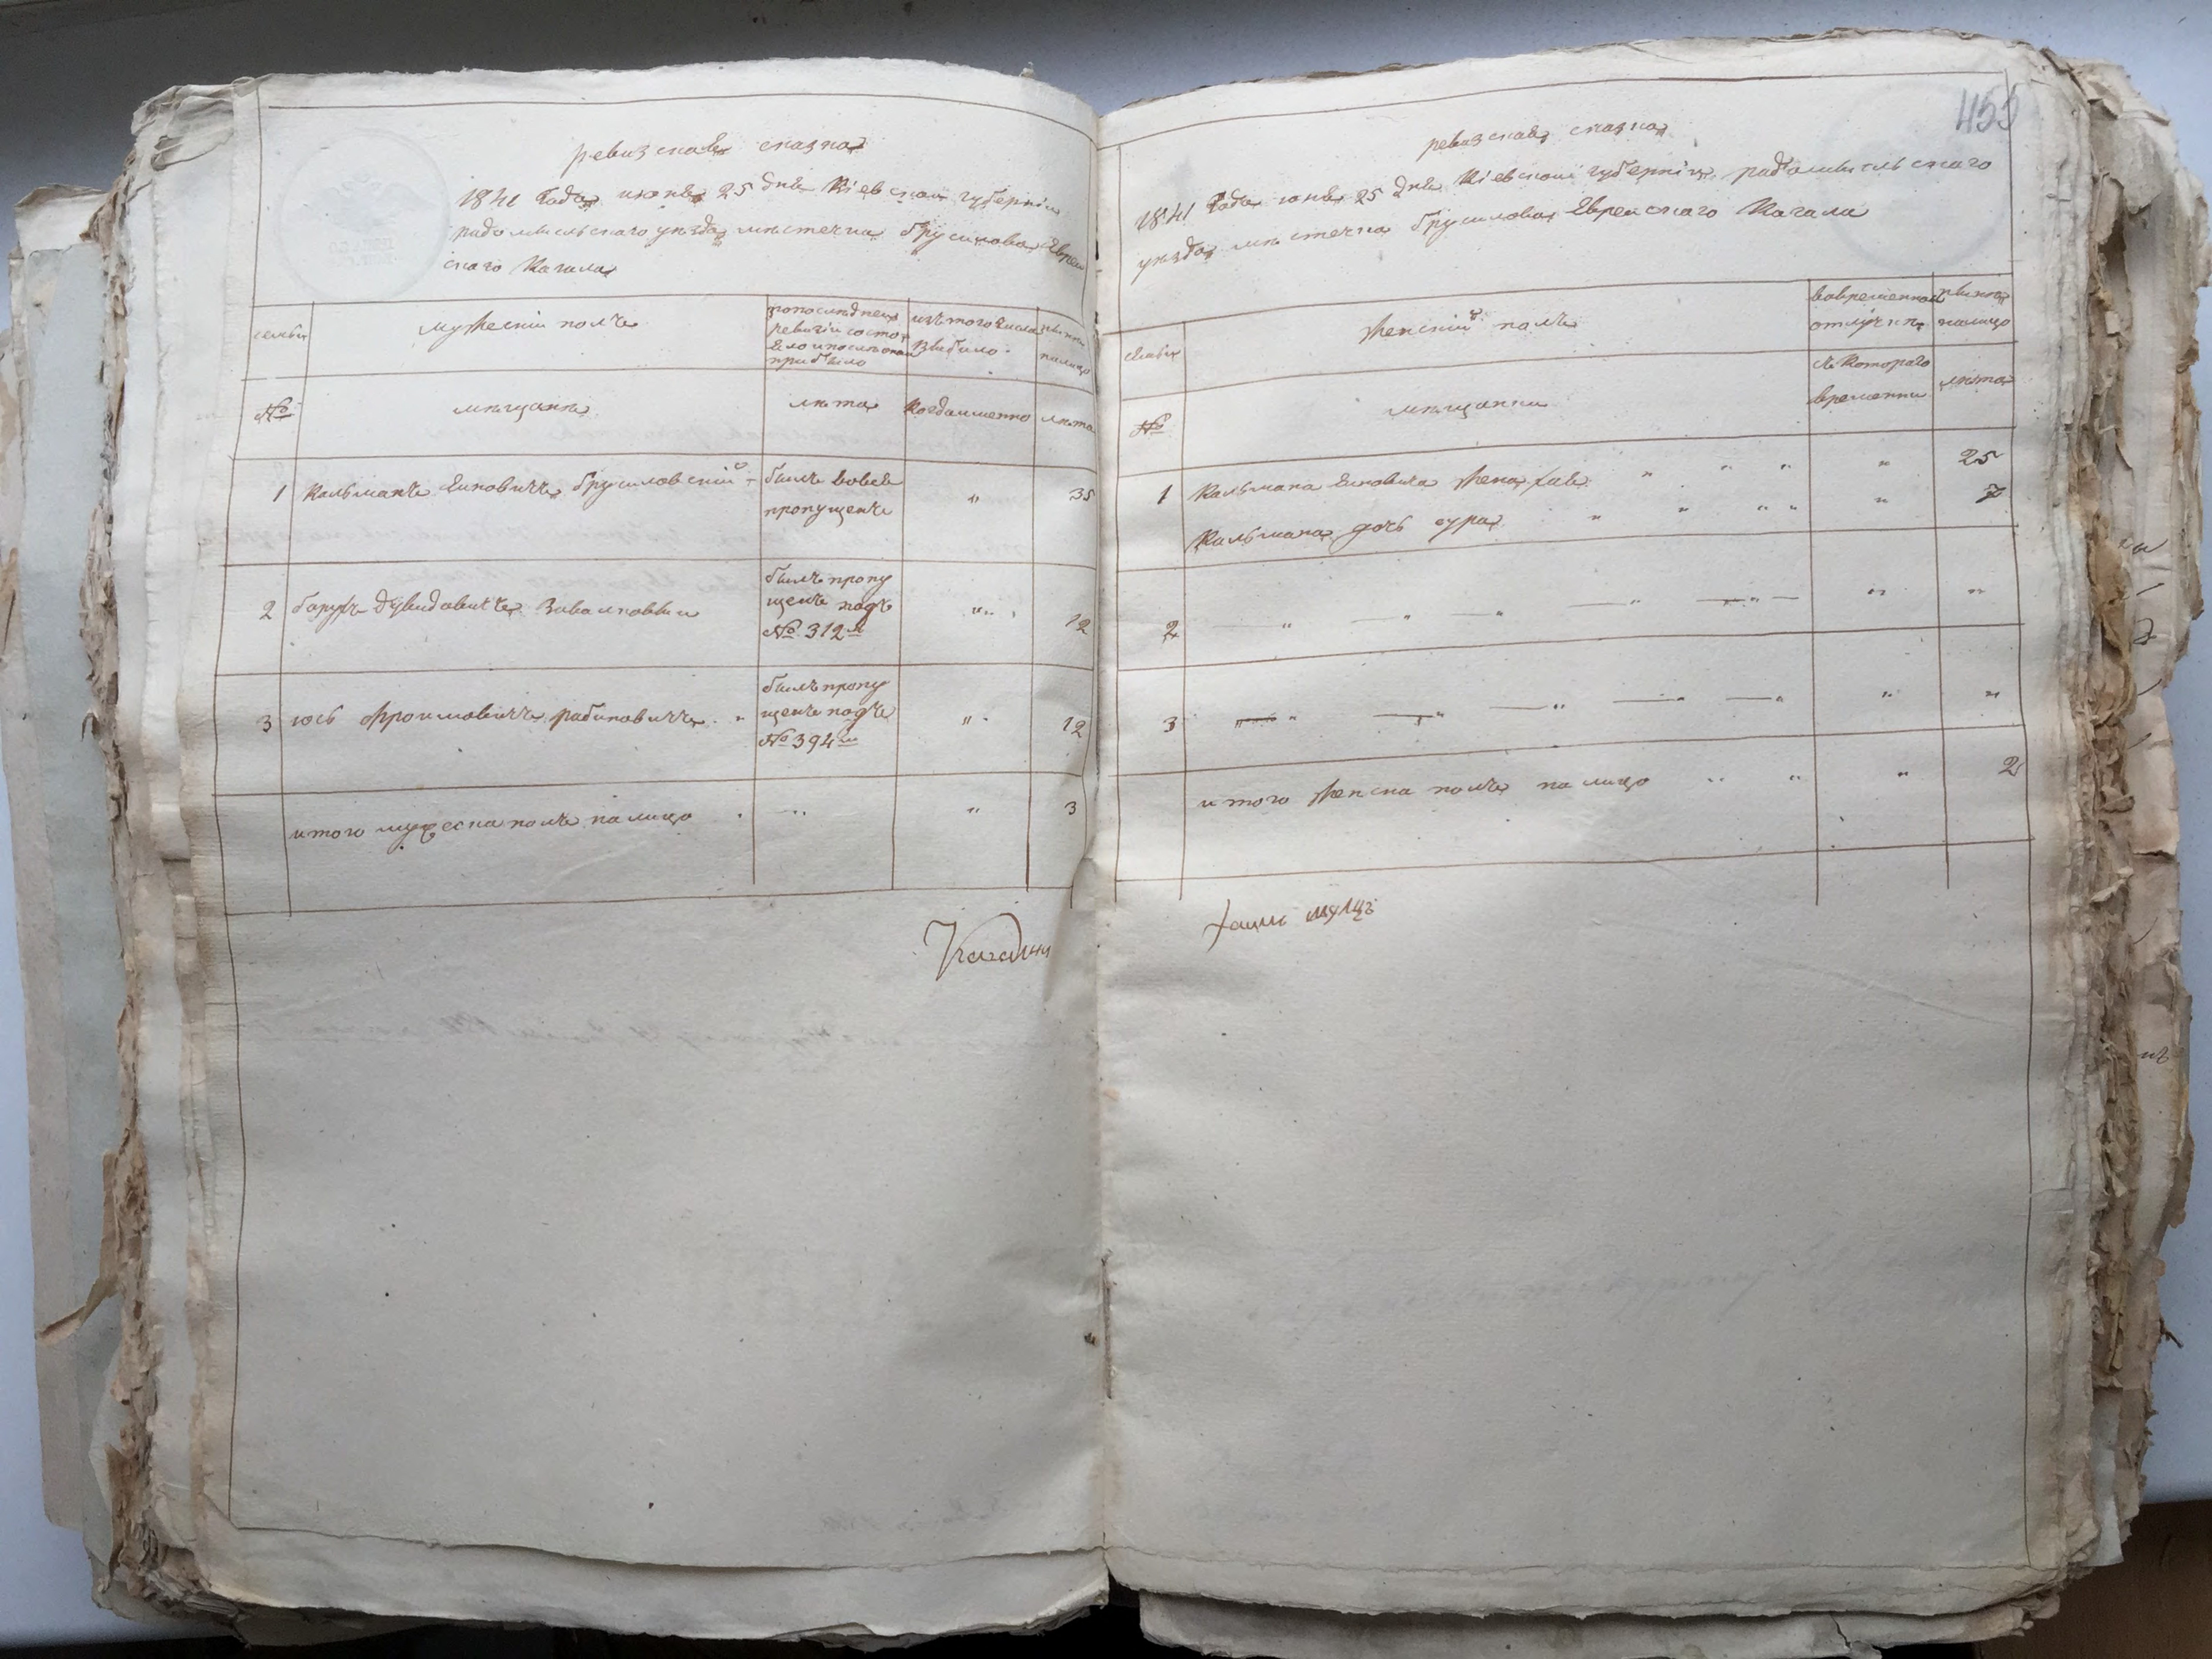 ревизская сказка
1841 года июня 25 дня Кіевской губерніи
радомысльскаго уезда местечка брусилова Еврей
скаго Кагала
семьи
мужескій полъ
попоследней
ревизіи состо
яло ипослетого
прибыло
изътого числа
выбыло
ныне
налицо
№
мещане
лета
когдаименно
лета
1 Кальманъ Янковичъ брусиловскій
былъ вовсе
пропущенъ
" 35
2 борухъ Дувидовичъ
былъ пропу
щенъ подъ
№ 312м
" 12
3 юсь Фроимовичъ рабиновичъ
былъ пропу
щенъ подъ
№ 394м
" 12
итого мужеска полъ налицо " " 3
455
ревизская сказка
1841 года юня 25 дня Кіевской губерніи радомысльскаго
уезда местечка брусилова Еврейскаго Кагала
семьи
женскій полъ
вовременной
отлучке
ныне
налицо
№
мещанки
съ Котораго
времени
лета
1 Кальмана Янковича жена хая " " " " 25
Кальмана дочь сура " " " " " 7
2 " " " " " " "
3 " " " " " " "
итого женска полъ налицо " " " 2
хаимъ шулцъ